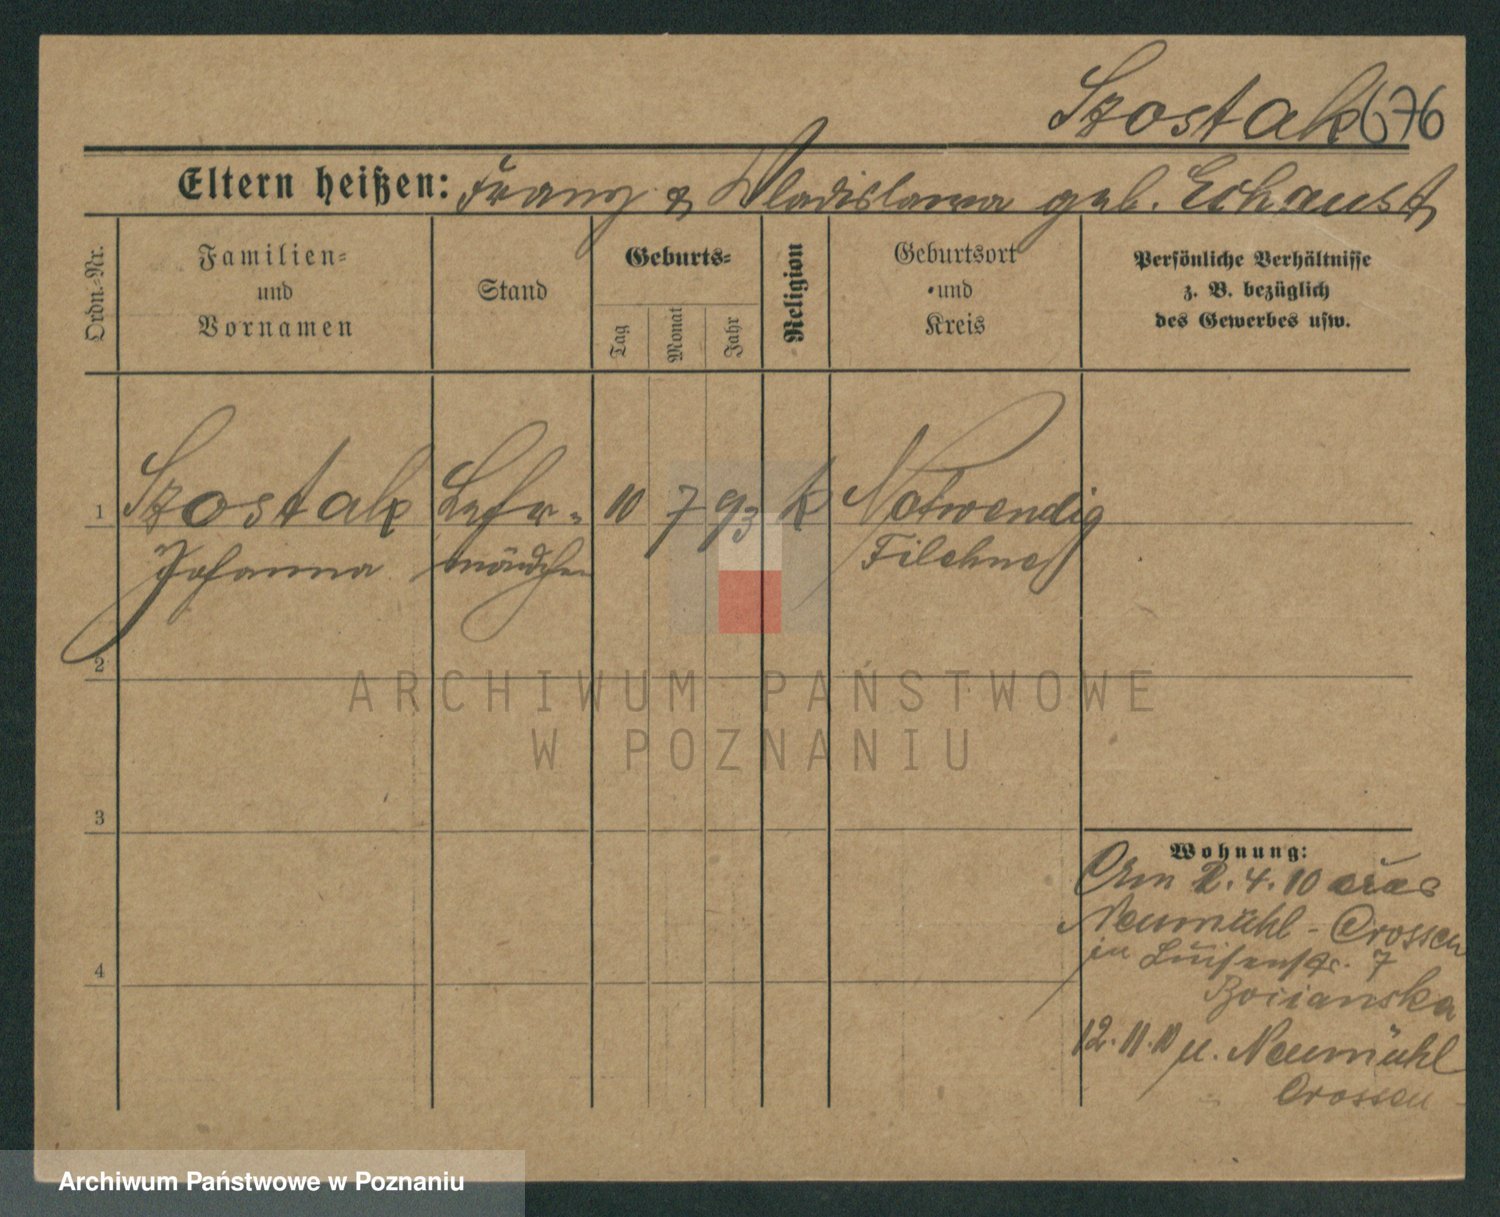 Szostak 676
Eltern heißen: Franz & Wladislawa geb. Eckaust
Ordn.-Nr.
Familien-
und
Vornamen
Stand
Geburts-
Tag
Monat
Jahr
Religion
Geburtsort
und
Kreis
Persönliche Verhältnisse
z. B. bezüglich
des Gewerbes usw.
1 Szostak Lehr- 10 7 93 k Notwendig
Johanna mädchen Filehne
2
3
4
Wohnung:
Am 2.4.10 aus
Neumühl - Crossen
in Luisenstr. 7
Bocianska
12.11.10 n. Neumühl
Crossen
ARCHIWUM PAŃSTWOWE
W POZNANIU
Archiwum Państwowe w Poznaniu